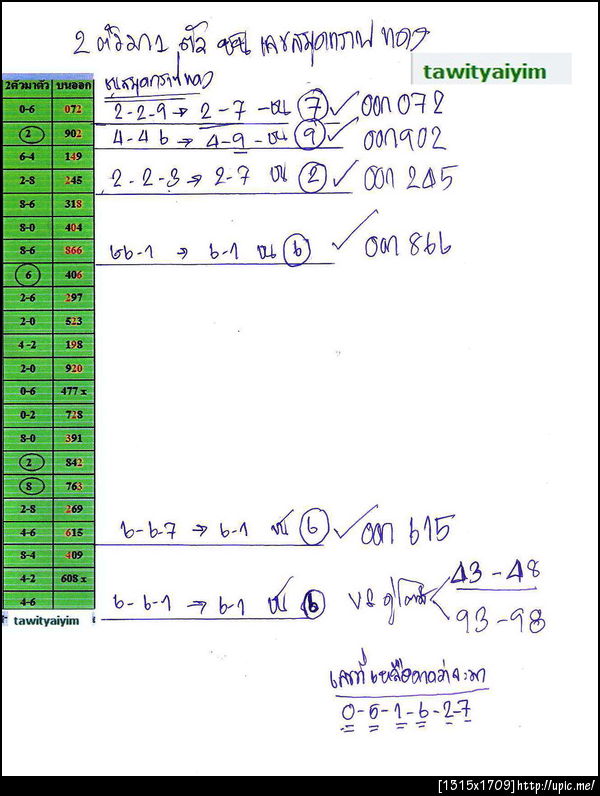 2 ตัวมา 1 ตัว ชน เลขสมุดทราฟทอง
tawityaiyim
2ตัวมาตัว บนออก
0-6 072 2-2-9 → 2-7 - ชน 7 ✓ ออก 072
2 902 4-4-6 → 4-9 - ชน 9 ✓ ออก 902
6-4 149
2-8 245 2-2-3 → 2-7 ชน 2 ✓ ออก 245
8-6 318
8-0 404
8-6 866 66-1 → 6-1 ชน 6 ✓ ออก 866
6 406
2-6 297
2-0 523
4-2 198
2-0 920
0-6 477 x
0-2 728
8-0 391
2 842
8 763
2-8 269
4-6 615 6-6-7 → 6-1 ชน 6 ✓ ออก 615
8-4 409
4-2 608 x
4-6 6-6-1 → 6-1 ชน 6 43-48
93-98
tawityaiyim
เลขที่เหลือคาดว่าจะมา
0-5-1-6-2-7
[1315x1709]http://upic.me/